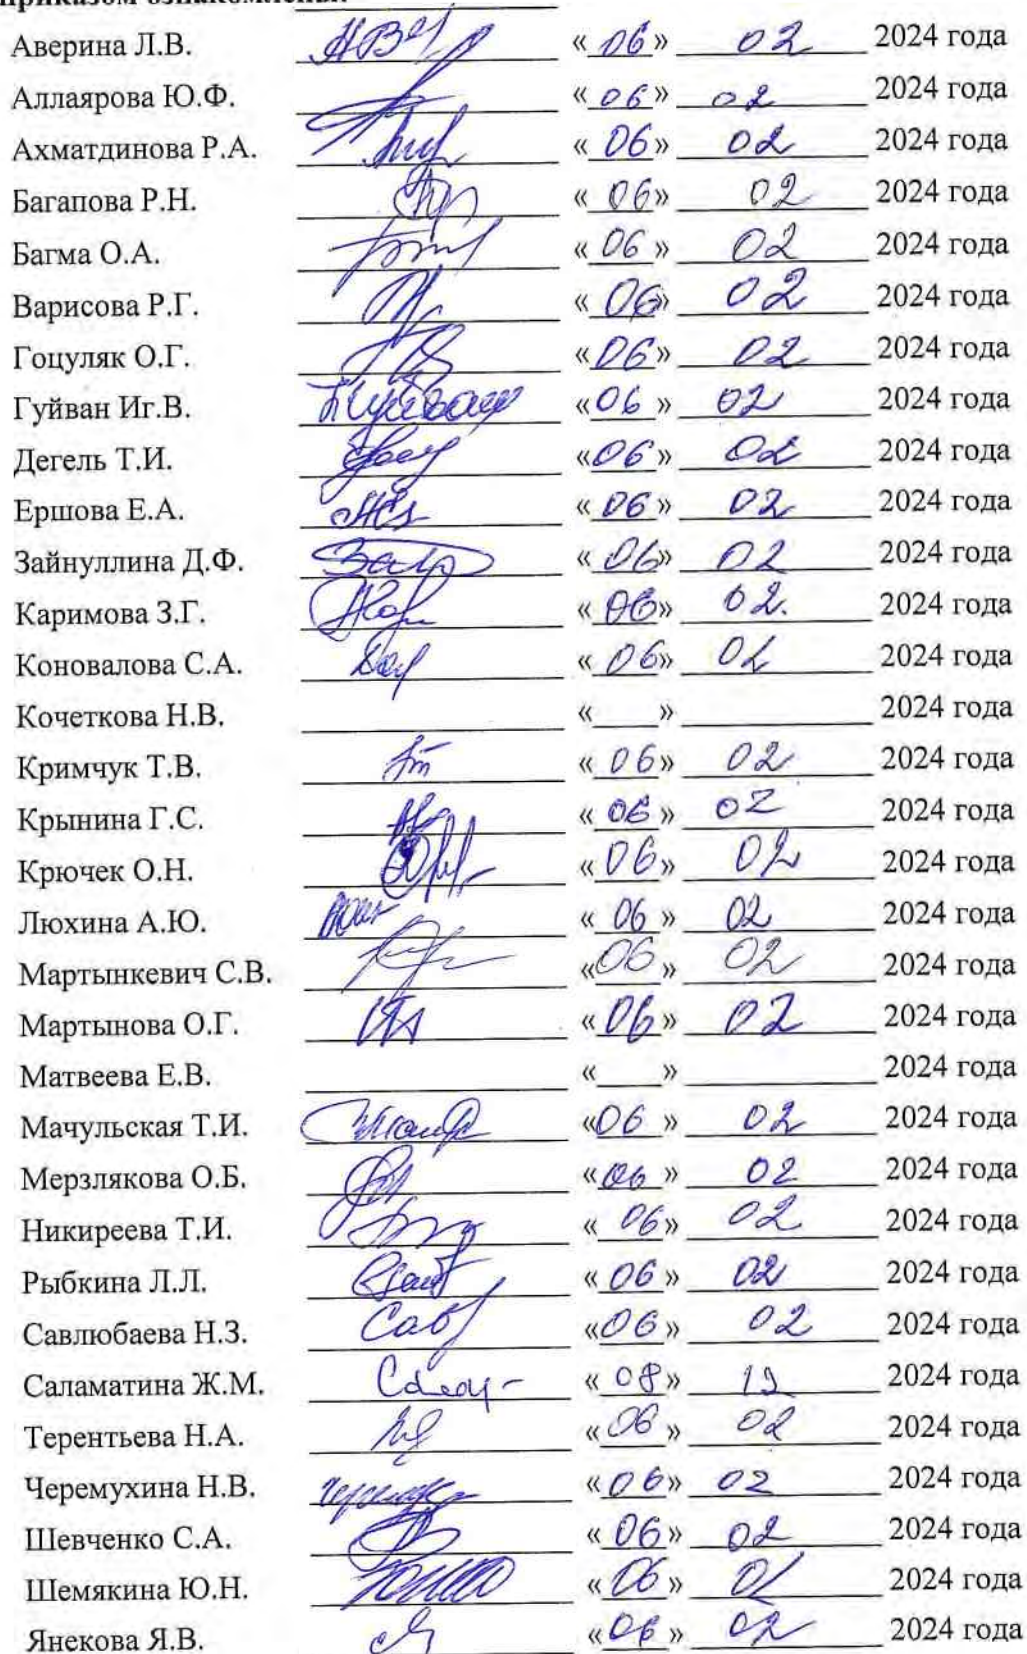 Приказом ознакомлены:
Аверина Л.В. « 06 » 02 2024 года
Аллаярова Ю.Ф. « 06 » 02 2024 года
Ахматдинова Р.А. « 06 » 02 2024 года
Багапова Р.Н. « 06 » 02 2024 года
Багма О.А. « 06 » 02 2024 года
Варисова Р.Г. « 06 » 02 2024 года
Гоцуляк О.Г. « 06 » 02 2024 года
Гуйван Иг.В. « 06 » 02 2024 года
Дегель Т.И. « 06 » 02 2024 года
Ершова Е.А. « 06 » 02 2024 года
Зайнуллина Д.Ф. « 06 » 02 2024 года
Каримова З.Г. « 06 » 02. 2024 года
Коновалова С.А. « 06 » 02 2024 года
Кочеткова Н.В. « » 2024 года
Кримчук Т.В. « 06 » 02 2024 года
Крынина Г.С. « 06 » 02 2024 года
Крючек О.Н. « 06 » 02 2024 года
Люхина А.Ю. « 06 » 02 2024 года
Мартынкевич С.В. « 06 » 02 2024 года
Мартынова О.Г. « 06 » 02 2024 года
Матвеева Е.В. « » 2024 года
Мачульская Т.И. « 06 » 02 2024 года
Мерзлякова О.Б. « 06 » 02 2024 года
Никиреева Т.И. « 06 » 02 2024 года
Рыбкина Л.Л. « 06 » 02 2024 года
Савлюбаева Н.З. « 06 » 02 2024 года
Саламатина Ж.М. « 08 » 2024 года
Терентьева Н.А. « 06 » 02 2024 года
Черемухина Н.В. « 06 » 02 2024 года
Шевченко С.А. « 06 » 02 2024 года
Шемякина Ю.Н. « 06 » 2024 года
Янекова Я.В. « 06 » 02 2024 года